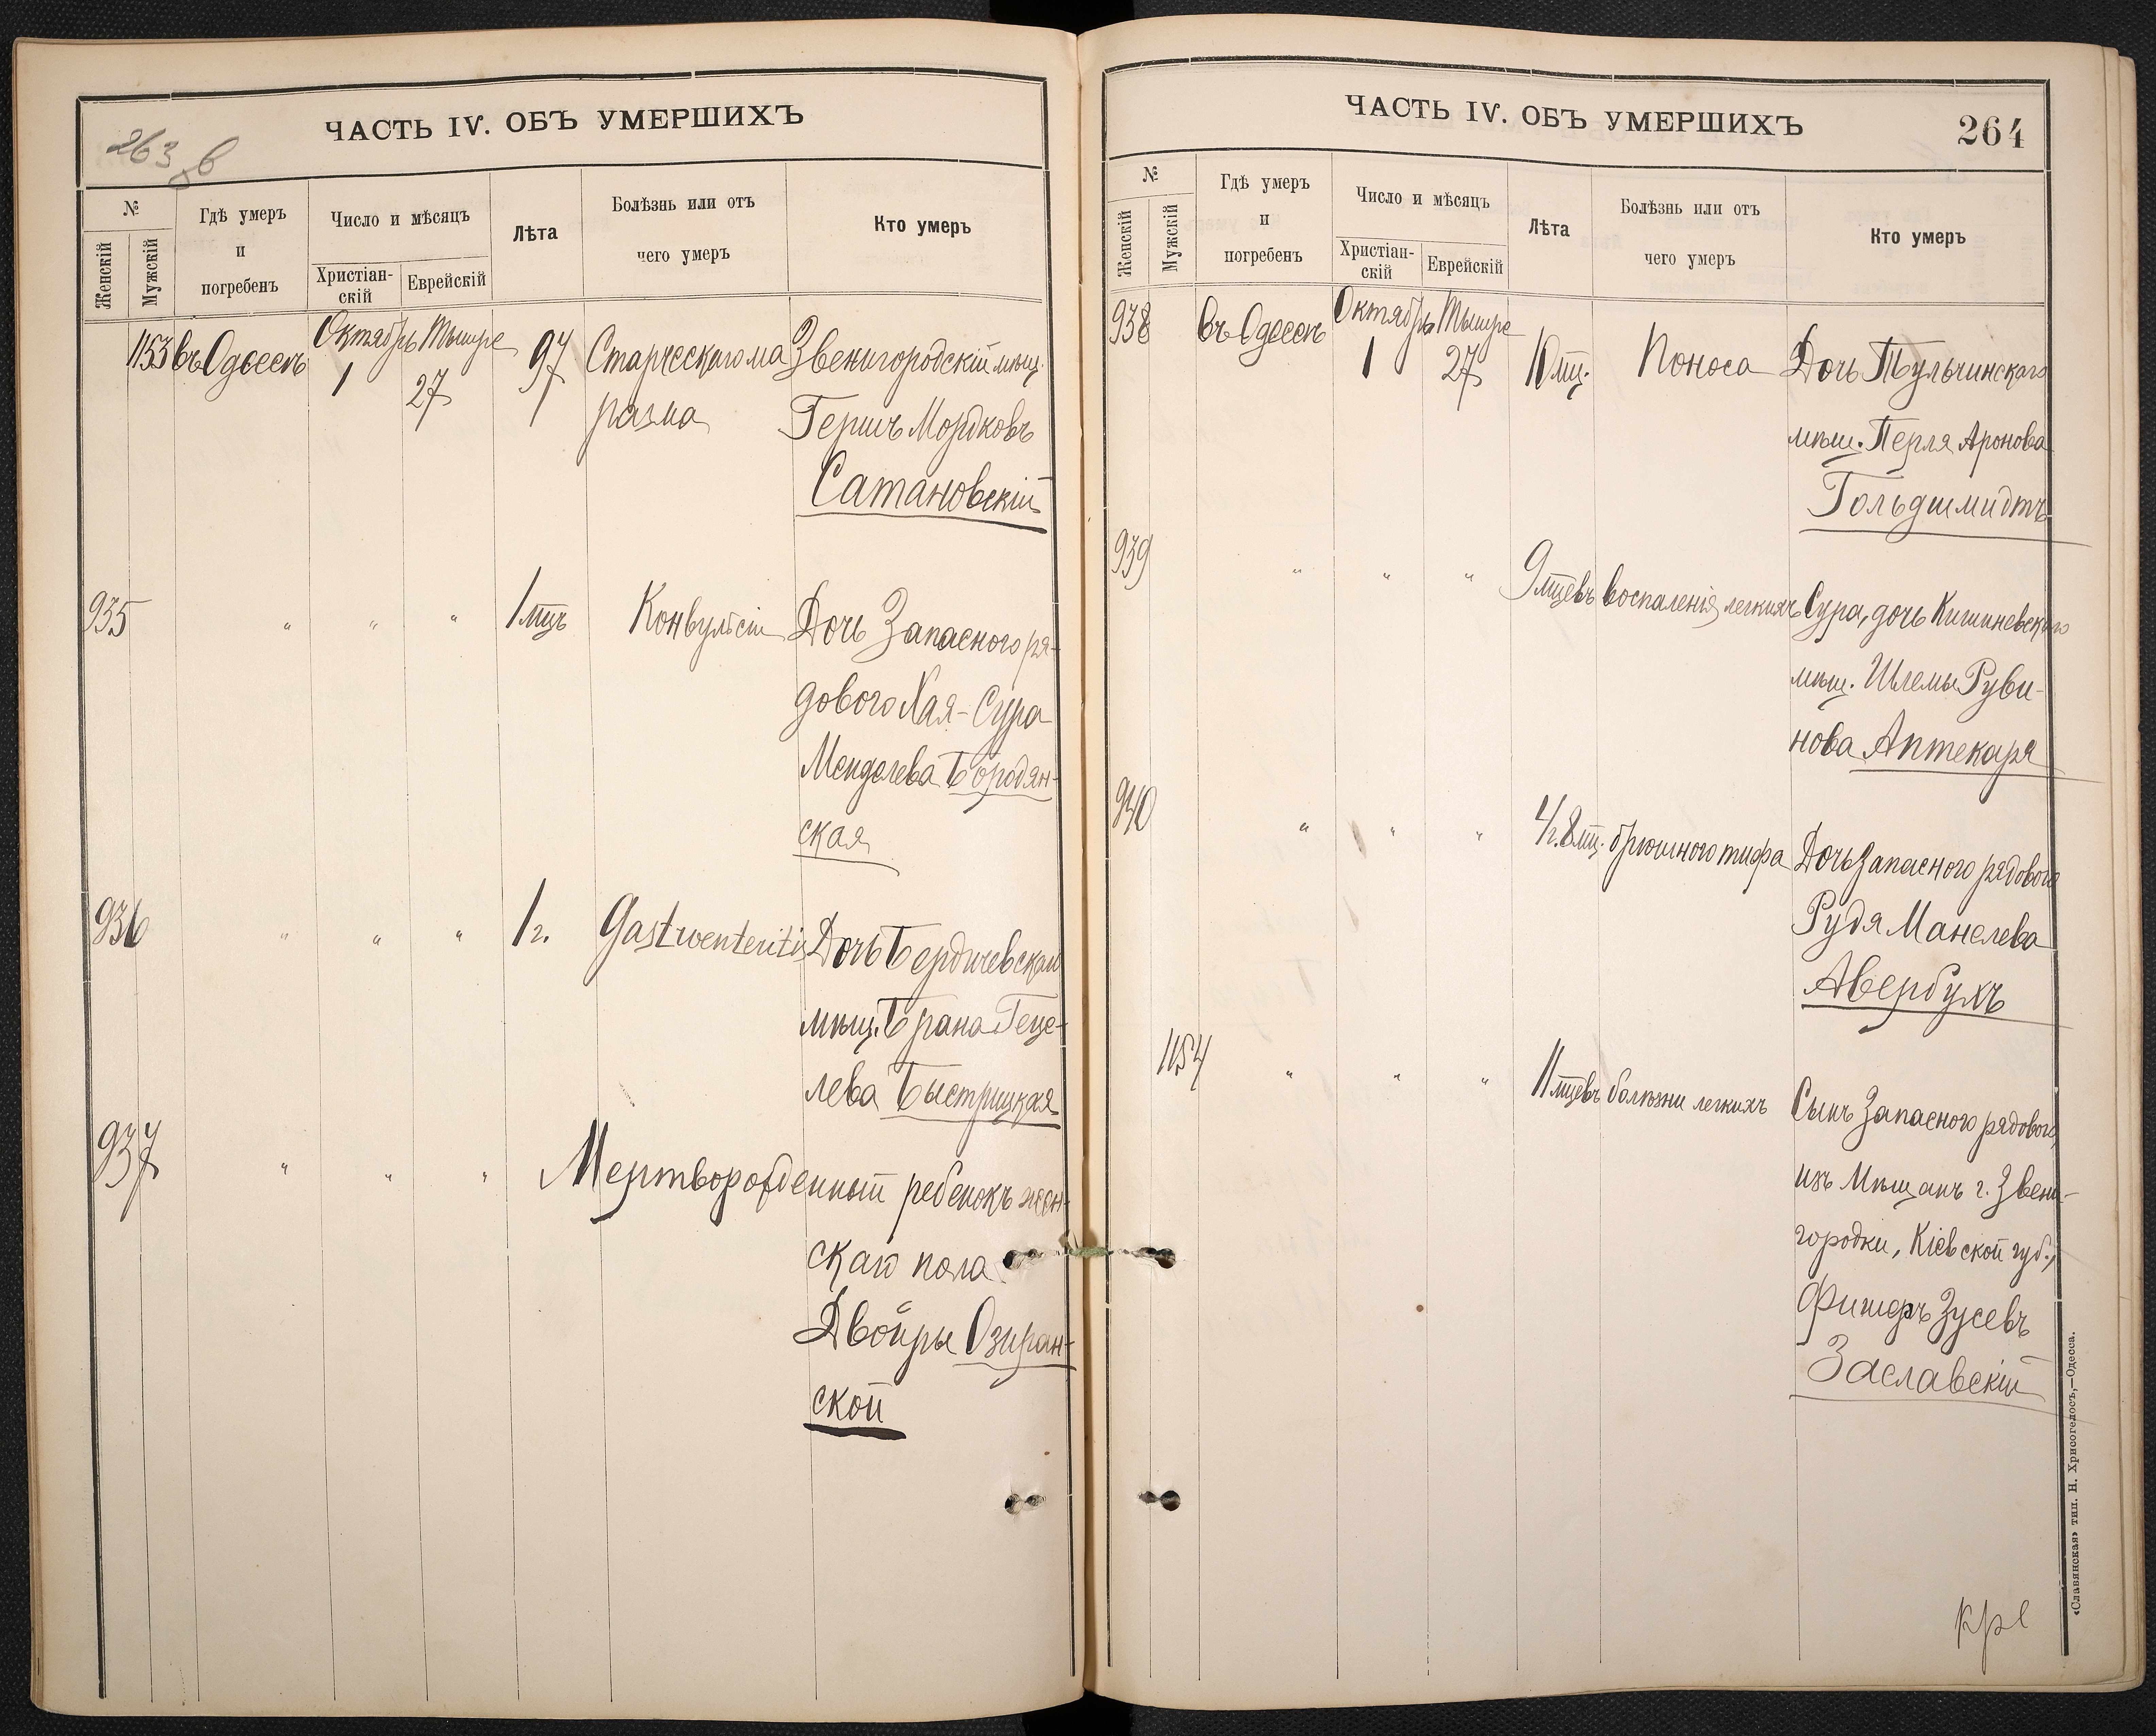 263 об
ЧАСТЬ IV. ОБЪ УМЕРШИХЪ
№
Женскій
Мужскій
Гдѣ умеръ
и
погребенъ
Число и мѣсяцъ
Христіан-
скій
Еврейскій
Лѣта
Болѣзнь или отъ
чего умеръ
Кто умеръ
1153 въ Одессѣ Октябрь Тышре 97 Старческаго ма Звенигородскій мѣщ.
1 27 разма Гершъ Мордковъ
Сатановскій
935 " " " 1 мцъ Конвульсіи Дочь Запасного ря-
дового Хая-Сура
Менделева Бородян-
ская
936 " " " 1 г. Gastroenteritis Дочь Бердичевскаго
мѣщ. Брана Геце-
лева Быстрицкая
937 " " " Мертворожденный ребенокъ жен-
скаго пола
Двойры Озиран-
ской
ЧАСТЬ IV. ОБЪ УМЕРШИХЪ
264
№
Женскій
Мужскій
Гдѣ умеръ
и
погребенъ
Число и мѣсяцъ
Христіан-
скій
Еврейскій
Лѣта
Болѣзнь или отъ
чего умеръ
Кто умеръ
938 въ Одессѣ Октябрь Тышре
1 27 10 мц. Поноса Дочь Тульчинскаго
мѣщ. Перля Аронова
Гольдшмидтъ
939 " " " 9 мцевъ воспаленія легкихъ Сура, дочь Кишиневскаго
мѣщ. Шлемы Руви-
нова Аптекаря
940 " " " 4 г. 8 мц. брюшного тифа Дочь запасного рядового
Рудя Манелева
Авербухъ
1154 " " " 11 мцевъ болѣзни легкихъ Сынъ Запасного рядового,
изъ Мѣщанъ г. Звени-
городки, Кіевской губ.,
Фишеръ Зусевъ
Заславскій
«Славянская» тип. Н. Хрисогелосъ,—Одесса.